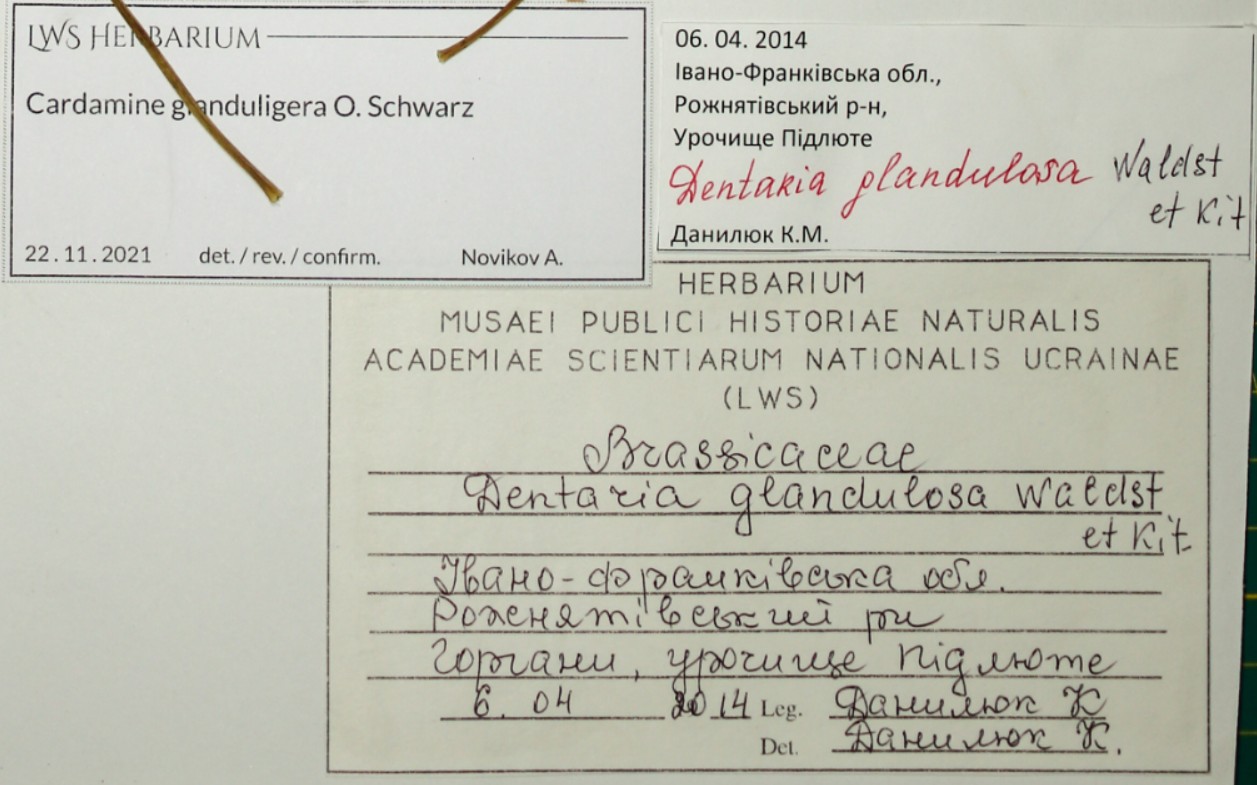 LWS HERBARIUM
Cardamine glanduligera O. Schwarz
22.11.2021 det. / rev. / confirm. Novikov A.
06. 04. 2014
Івано-Франківська обл.,
Рожнятівський р-н,
Урочище Підлюте
Dentaria glandulosa Waldst
et Kit
Данилюк К.М.
HERBARIUM
MUSAEI PUBLICI HISTORIAE NATURALIS
ACADEMIAE SCIENTIARUM NATIONALIS UCRAINAE
(LWS)
Brassicaceae
Dentaria glandulosa Waldst
et Kit
Івано-франківська обл.
Рожнятівський рн
Горгани, урочище Підлюте
6. 04 2014 Leg. Данилюк К
Det. Данилюк К.